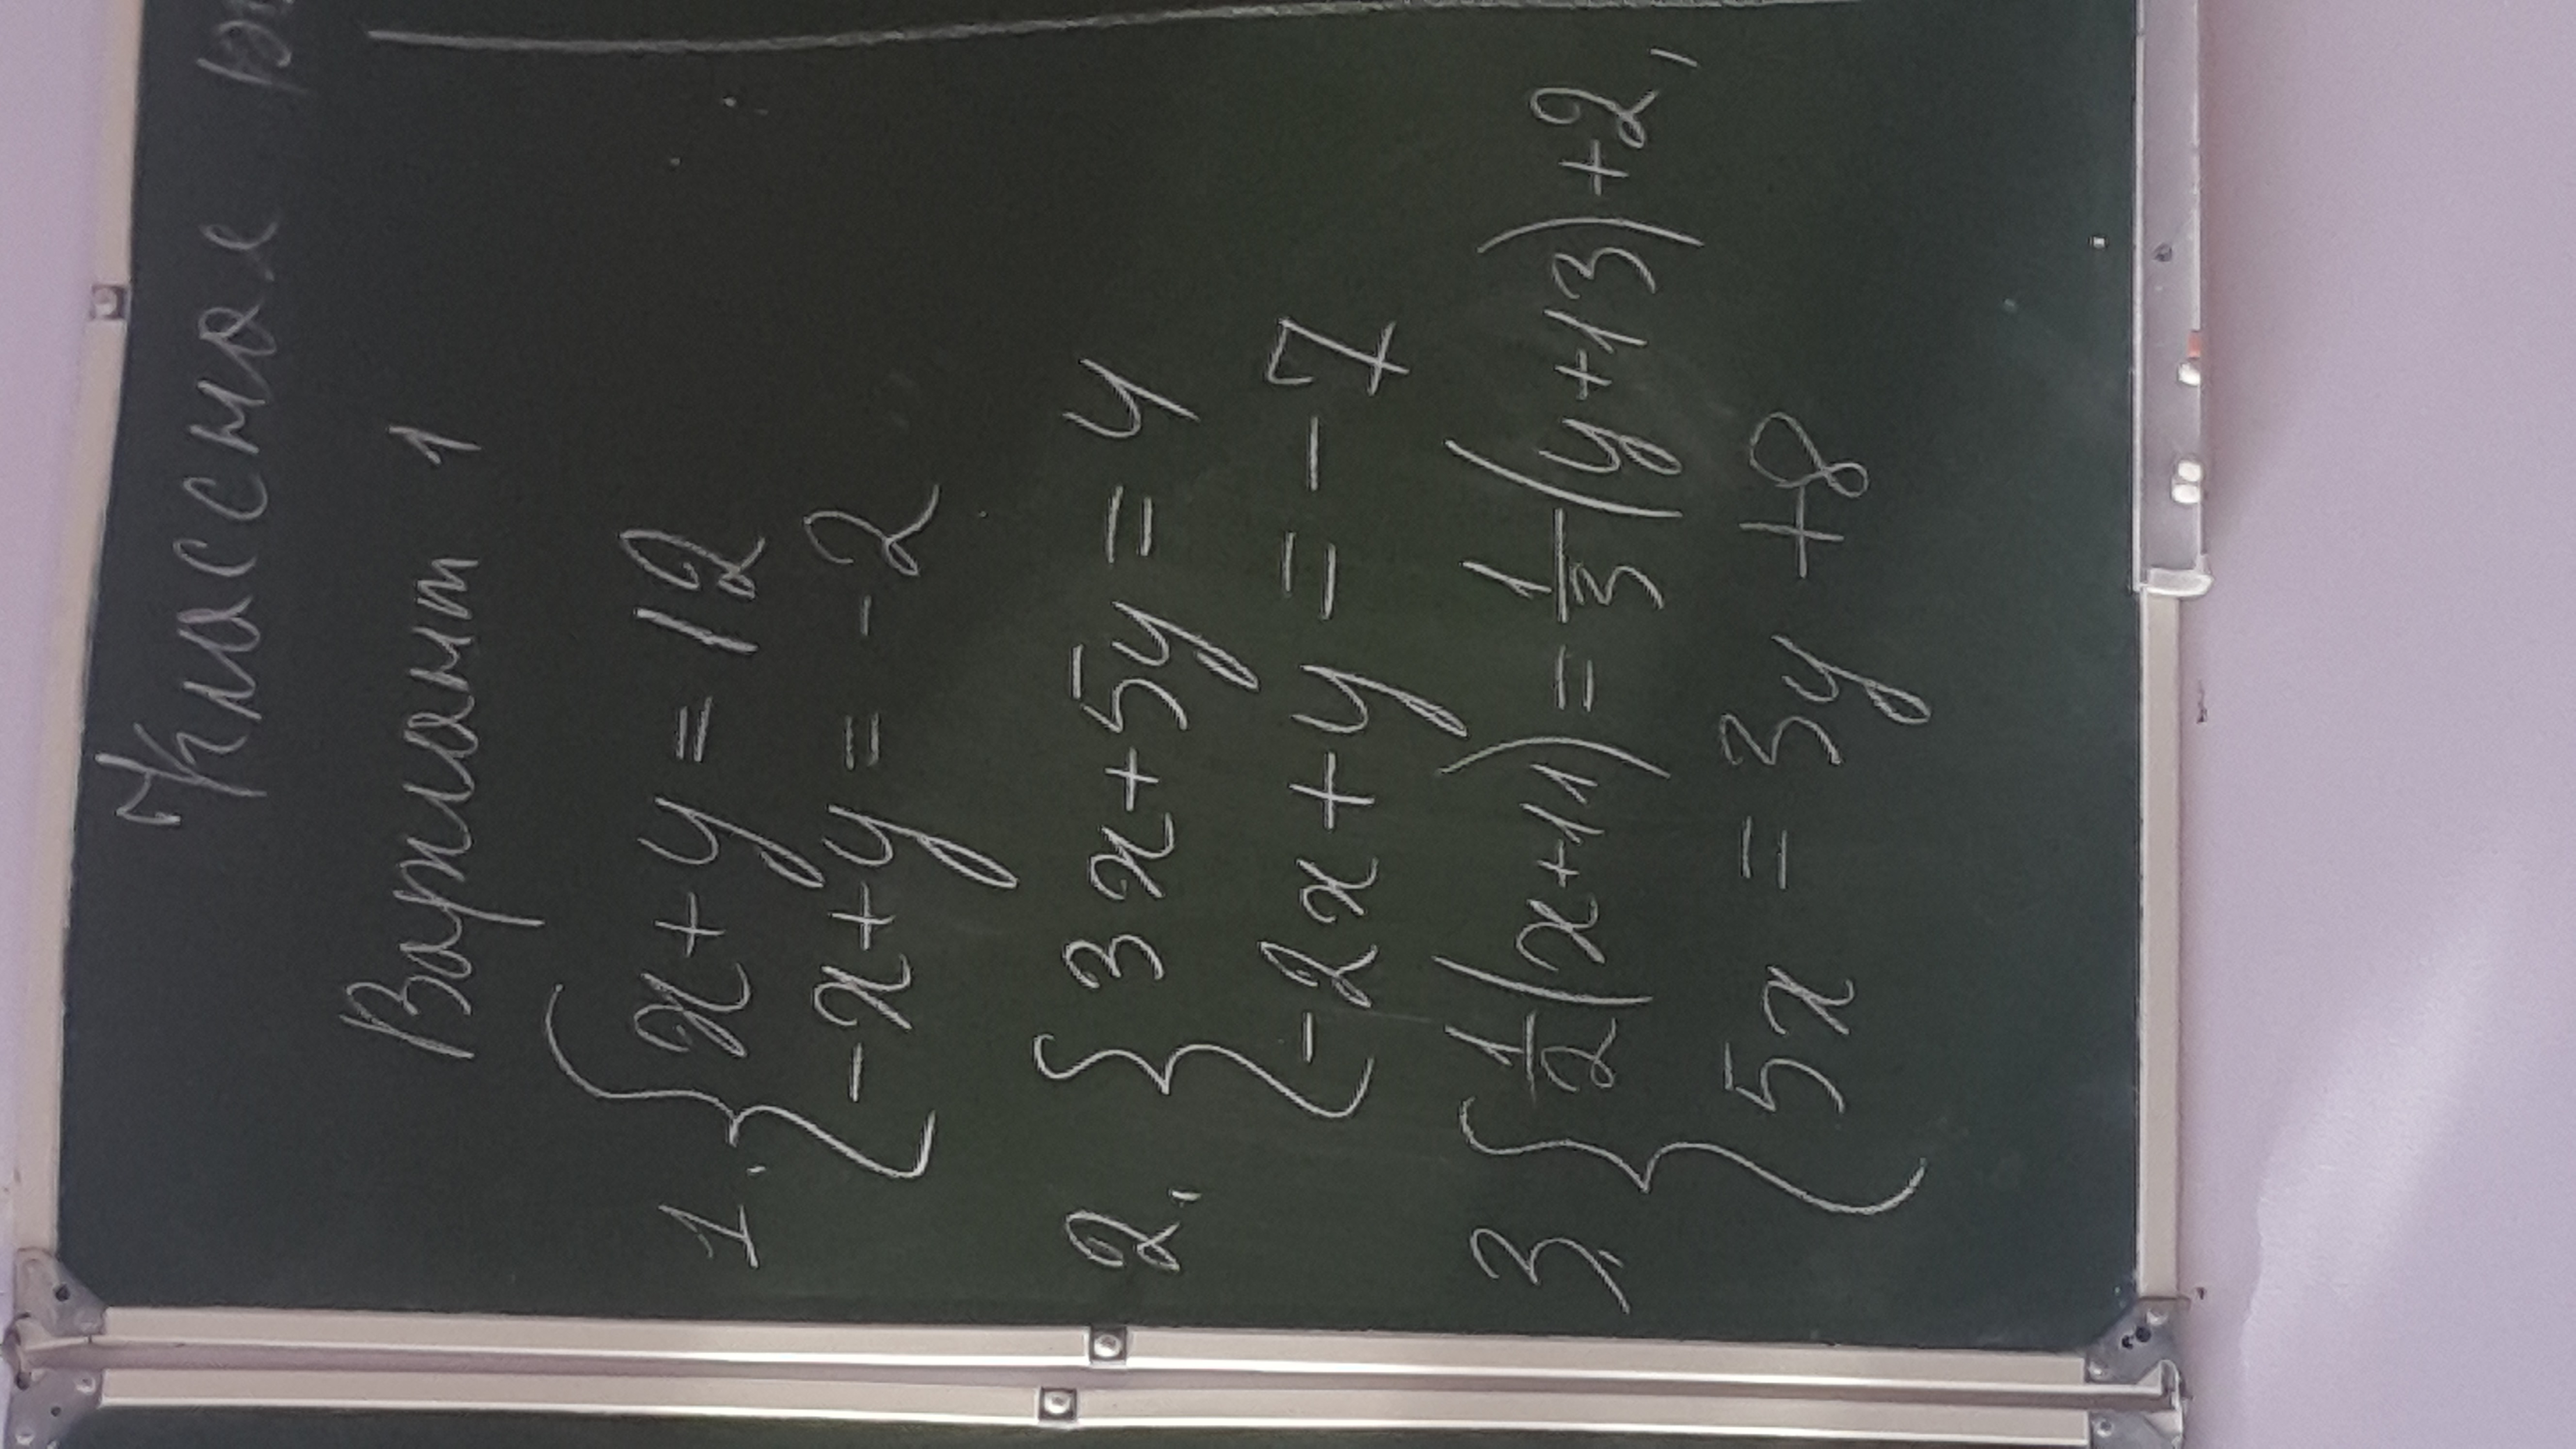 Классная
Вариант 1
1. { x + y = 12
-x + y = -2
2. { 3x + 5y = 4
-2x + y = -7
3. { 1/2 (x + 11) = 1/3 (y + 13) + 2,
5x = 3y + 8